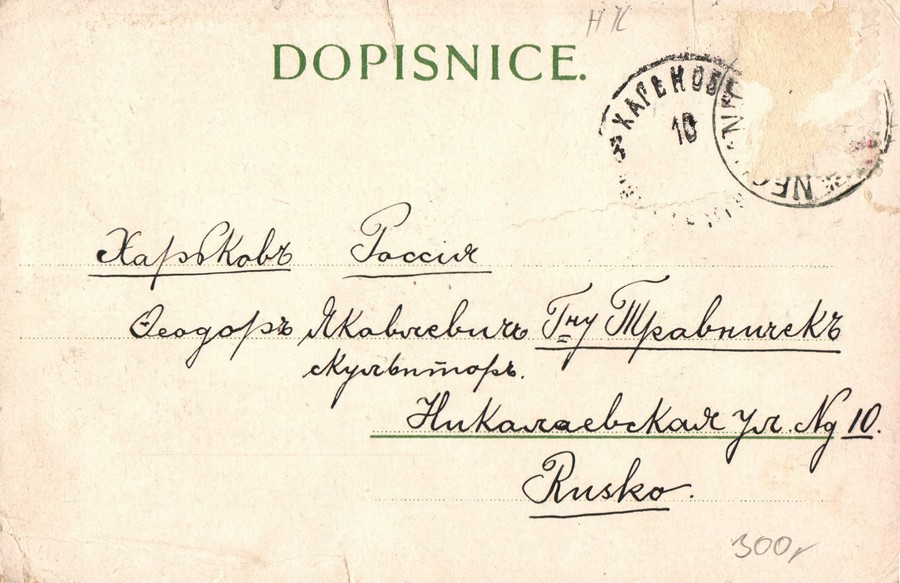 Н К
DOPISNICE.
ХАРЬКОВЪ
10
Харьковъ Россия
Ѳеодоръ Яковлевичъ Гну Травничекъ
скульпторъ.
Николаевская ул. № 10.
Rusko.
300 г